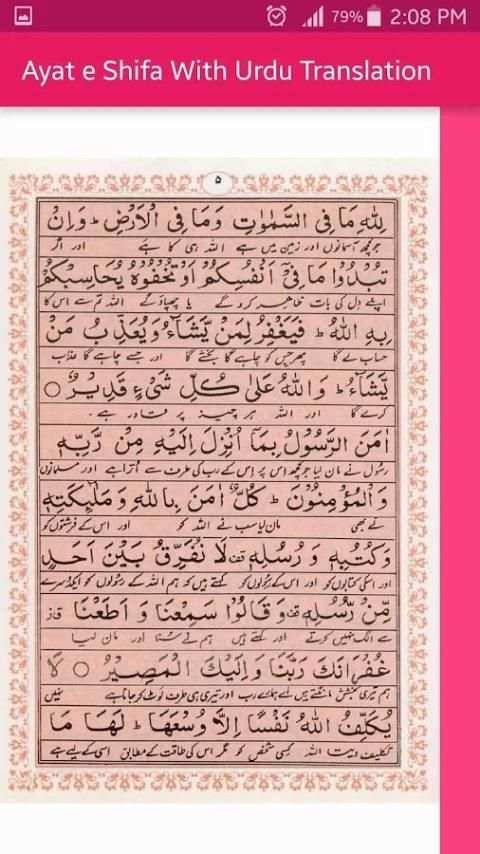 79% 2:08 PM
Ayat e Shifa With Urdu Translation
۵
لِلّٰهِ مَا فِی السَّمٰوٰتِ وَمَا فِی الْاَرْضِ ؕ وَاِنْ
جو کچھ آسمانوں اور زمین میں ہے اللہ ہی کا ہے اور اگر
تُبْدُوْا مَا فِیْۤ اَنْفُسِكُمْ اَوْ تُخْفُوْهُ یُحَاسِبْكُمْ
اپنے دل کی بات ظاہر کرو گے یا چھپاؤ گے اللہ تم سے اس کا
بِهِ اللّٰهُ ؕ فَیَغْفِرُ لِمَنْ یَّشَآءُ وَیُعَذِّبُ مَنْ
حساب لے گا پھر جس کو چاہے گا بخشے گا اور جسے چاہے گا عذاب
یَّشَآءُ ؕ وَاللّٰهُ عَلٰی كُلِّ شَیْءٍ قَدِیْرٌ ○
کرے گا اور اللہ ہر چیز پر قادر ہے۔
اٰمَنَ الرَّسُوْلُ بِمَاۤ اُنْزِلَ اِلَیْهِ مِنْ رَّبِّهٖ
رسول نے مان لیا جو کچھ اس پر اس کے رب کی طرف سے اُترا ہے اور مسلمانوں
وَالْمُؤْمِنُوْنَ ؕ كُلٌّ اٰمَنَ بِاللّٰهِ وَمَلٰٓئِكَتِهٖ
نے بھی مان لیا سب نے اللہ کو اور اس کے فرشتوں کو
وَكُتُبِهٖ وَرُسُلِهٖ قف لَا نُفَرِّقُ بَیْنَ اَحَدٍ
اور اسکی کتابوں کو اور اس کے رسولوں کو کہتے ہیں کہ ہم اللہ کے رسولوں کو ایک دوسرے
مِّنْ رُّسُلِهٖ قف وَقَالُوْا سَمِعْنَا وَاَطَعْنَا
سے الگ نہیں کرتے اور کہتے ہیں ہم نے سنا اور مان لیا
غُفْرَانَكَ رَبَّنَا وَاِلَیْكَ الْمَصِیْرُ ○ لَا
ہم تیری بخشش مانگتے ہیں اے ہمارے رب اور تیری ہی طرف لوٹ کر جانا ہے نہیں
یُكَلِّفُ اللّٰهُ نَفْسًا اِلَّا وُسْعَهَا ؕ لَهَا مَا
تکلیف دیتا اللہ کسی شخص کو مگر اس کی طاقت کے مطابق اسی کے لیے ہے